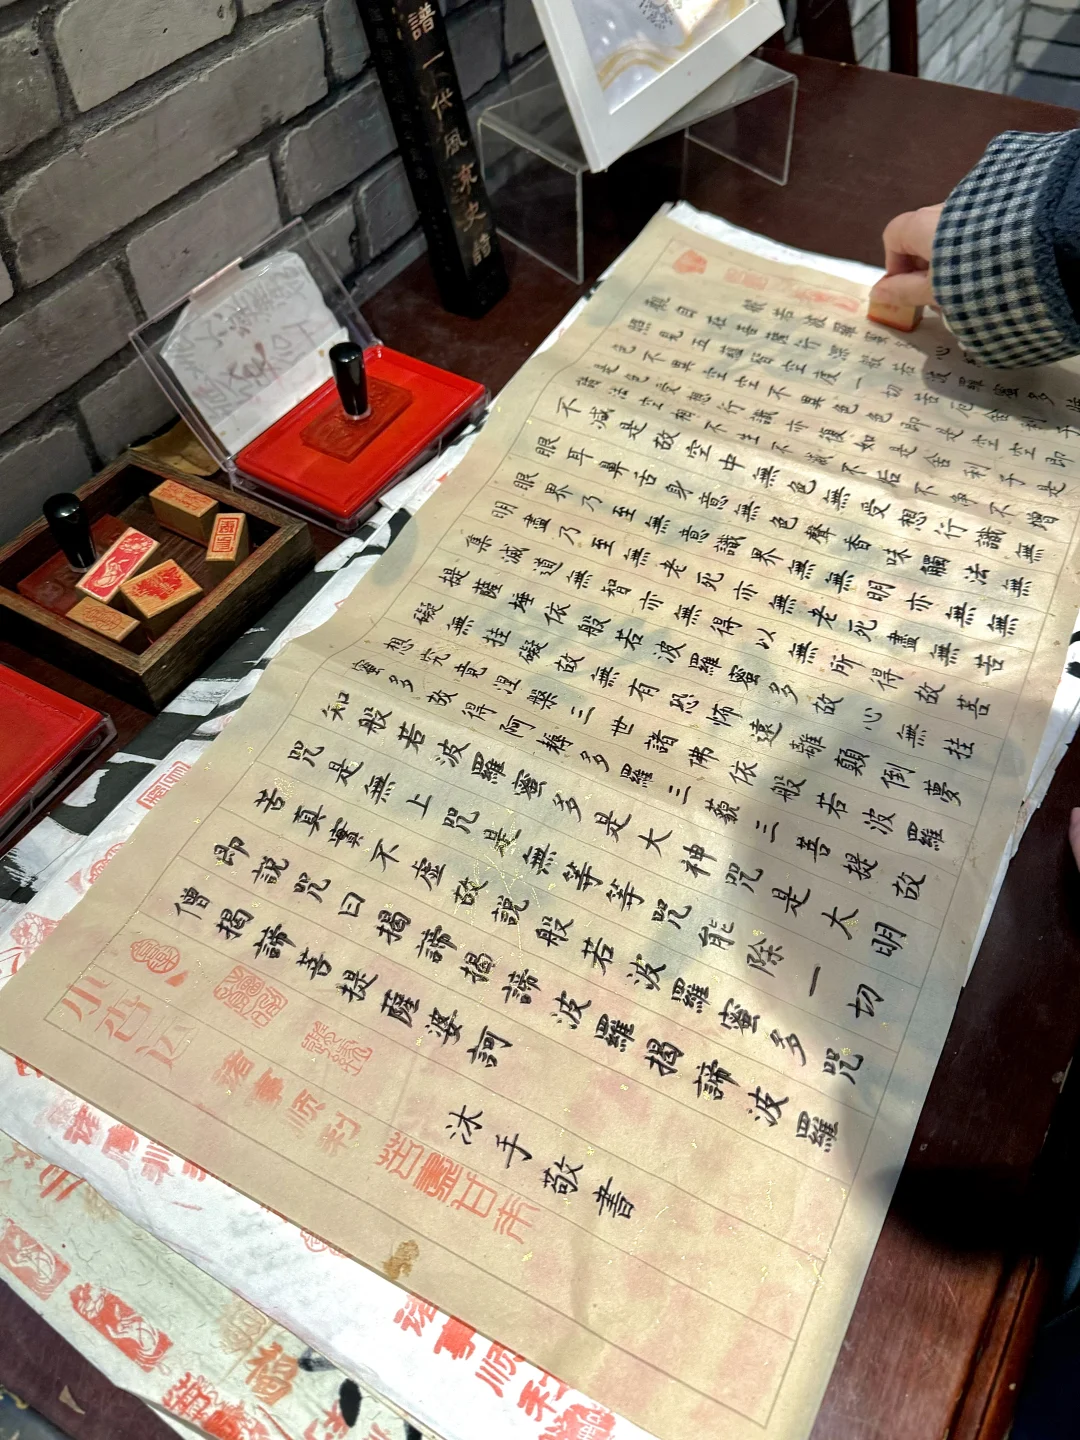 譜一代風流史詩
般若波羅蜜多心
觀自在菩薩行深般若波羅蜜多時
照見五蘊皆空度一切苦厄舍利子
色不異空空不異色色即是空空即
是色受想行識亦復如是舍利子是
諸法空相不生不滅不垢不淨不增
不減是故空中無色無受想行識無
眼耳鼻舌身意無色聲香味觸法無
眼界乃至無意識界無無明亦無無
明盡乃至無老死亦無老死盡無苦
集滅道無智亦無得以無所得故菩
提薩埵依般若波羅蜜多故心無挂
礙無挂礙故無有恐怖遠離顛倒夢
想究竟涅槃三世諸佛依般若波羅
蜜多故得阿耨多羅三藐三菩提故
知般若波羅蜜多是大神咒是大明
咒是無上咒是無等等咒能除一切
苦真實不虛故說般若波羅蜜多咒
即說咒曰揭諦揭諦波羅揭諦波羅
僧揭諦菩提薩婆訶
沐手敬書
诸事顺利
诸事顺利